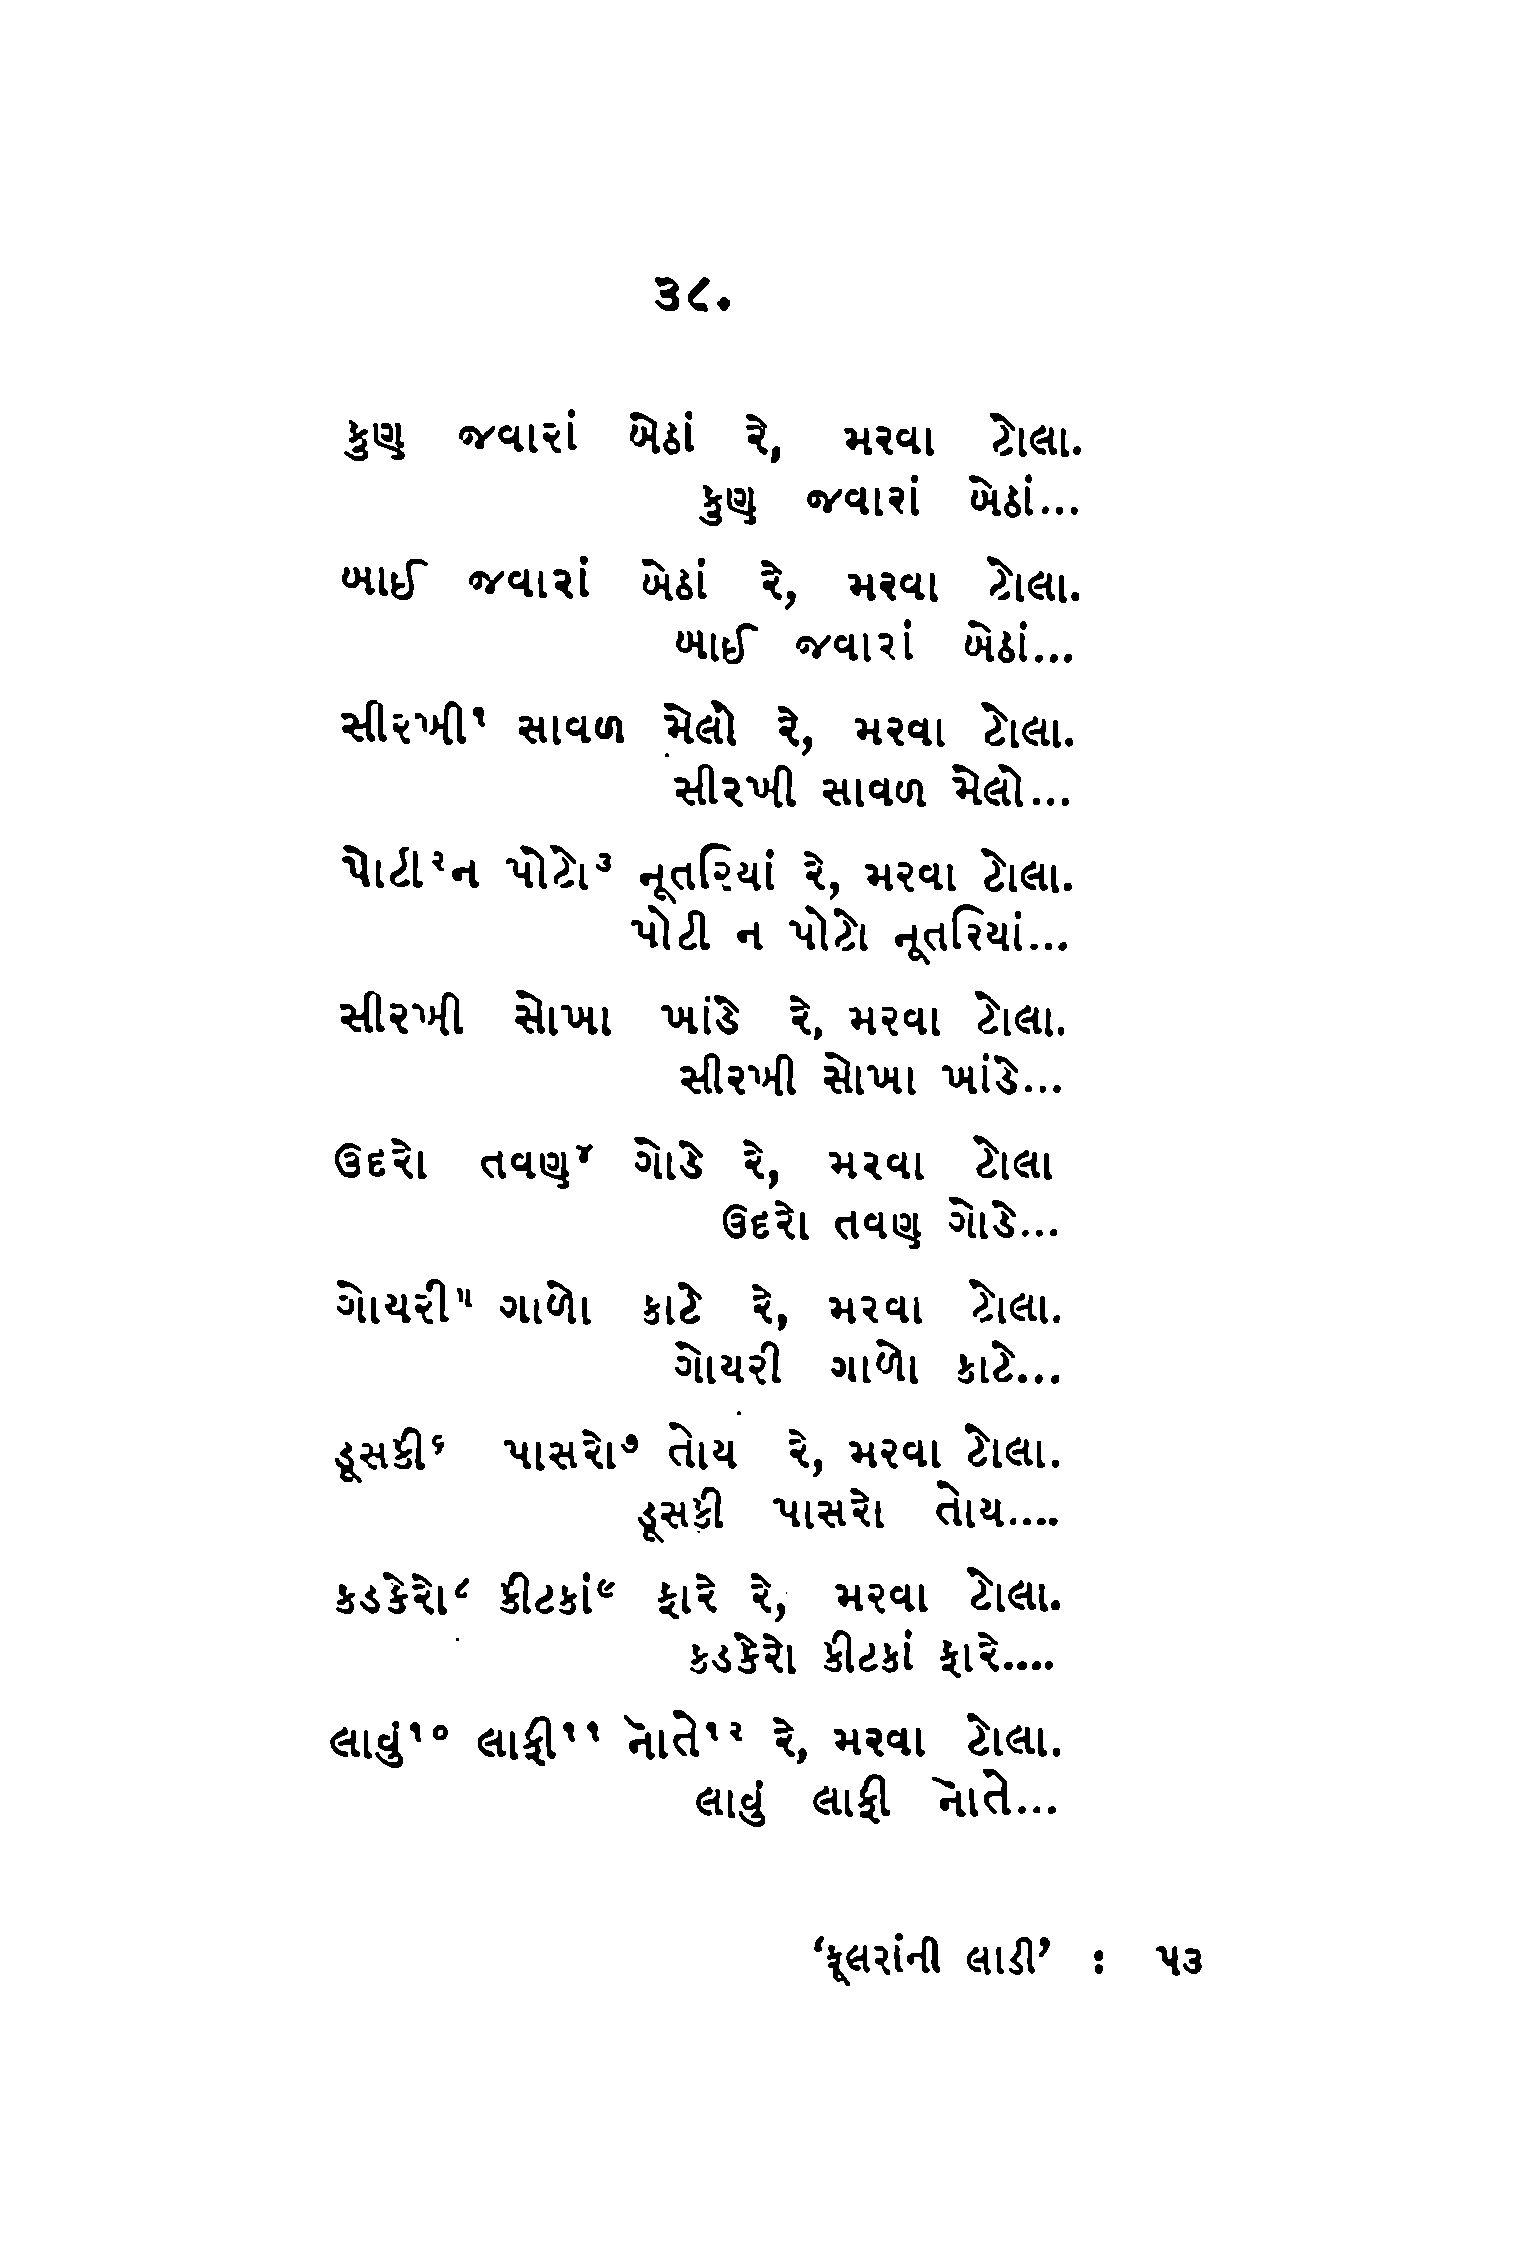 ૩૮.
કુણ જવારાં બેઠાં રે, મરવા ટોલા.
કુણ જવારાં બેઠાં...
બાઈ જવારાં બેઠાં રે, મરવા ટોલા.
બાઈ જવારાં બેઠાં...
સીરખી૧ સાવળ મેલો રે, મરવા ટોલા.
સીરખી સાવળ મેલો...
પોટી૨ન પોટો૩ નૂતરિયાં રે, મરવા ટોલા.
પોટી ન પોટો નૂતરિયાં...
સીરખી સોખા ખાંડે રે, મરવા ટોલા.
સીરખી સોખા ખાંડે...
ઉદરો તવણ૪ ગોડે રે, મરવા ટોલા
ઉદરો તવણ ગોડે...
ગોયરી૫ ગાળો કાટે રે, મરવા ટોલા.
ગોયરી ગાળો કાટે...
ડૂસકી૬ પાસરો૭ તોય રે, મરવા ટોલા.
ડૂસકી પાસરો તોય....
કડકેરો૮ કીટકાં૯ ફારે રે, મરવા ટોલા.
કડકેરો કીટકાં ફારે....
લાવું૧૦ લાફી૧૧ નૉતે૧૨ રે, મરવા ટોલા.
લાવું લાફી નૉતે...
‘ફૂલરાંની લાડી’ : ૫૩